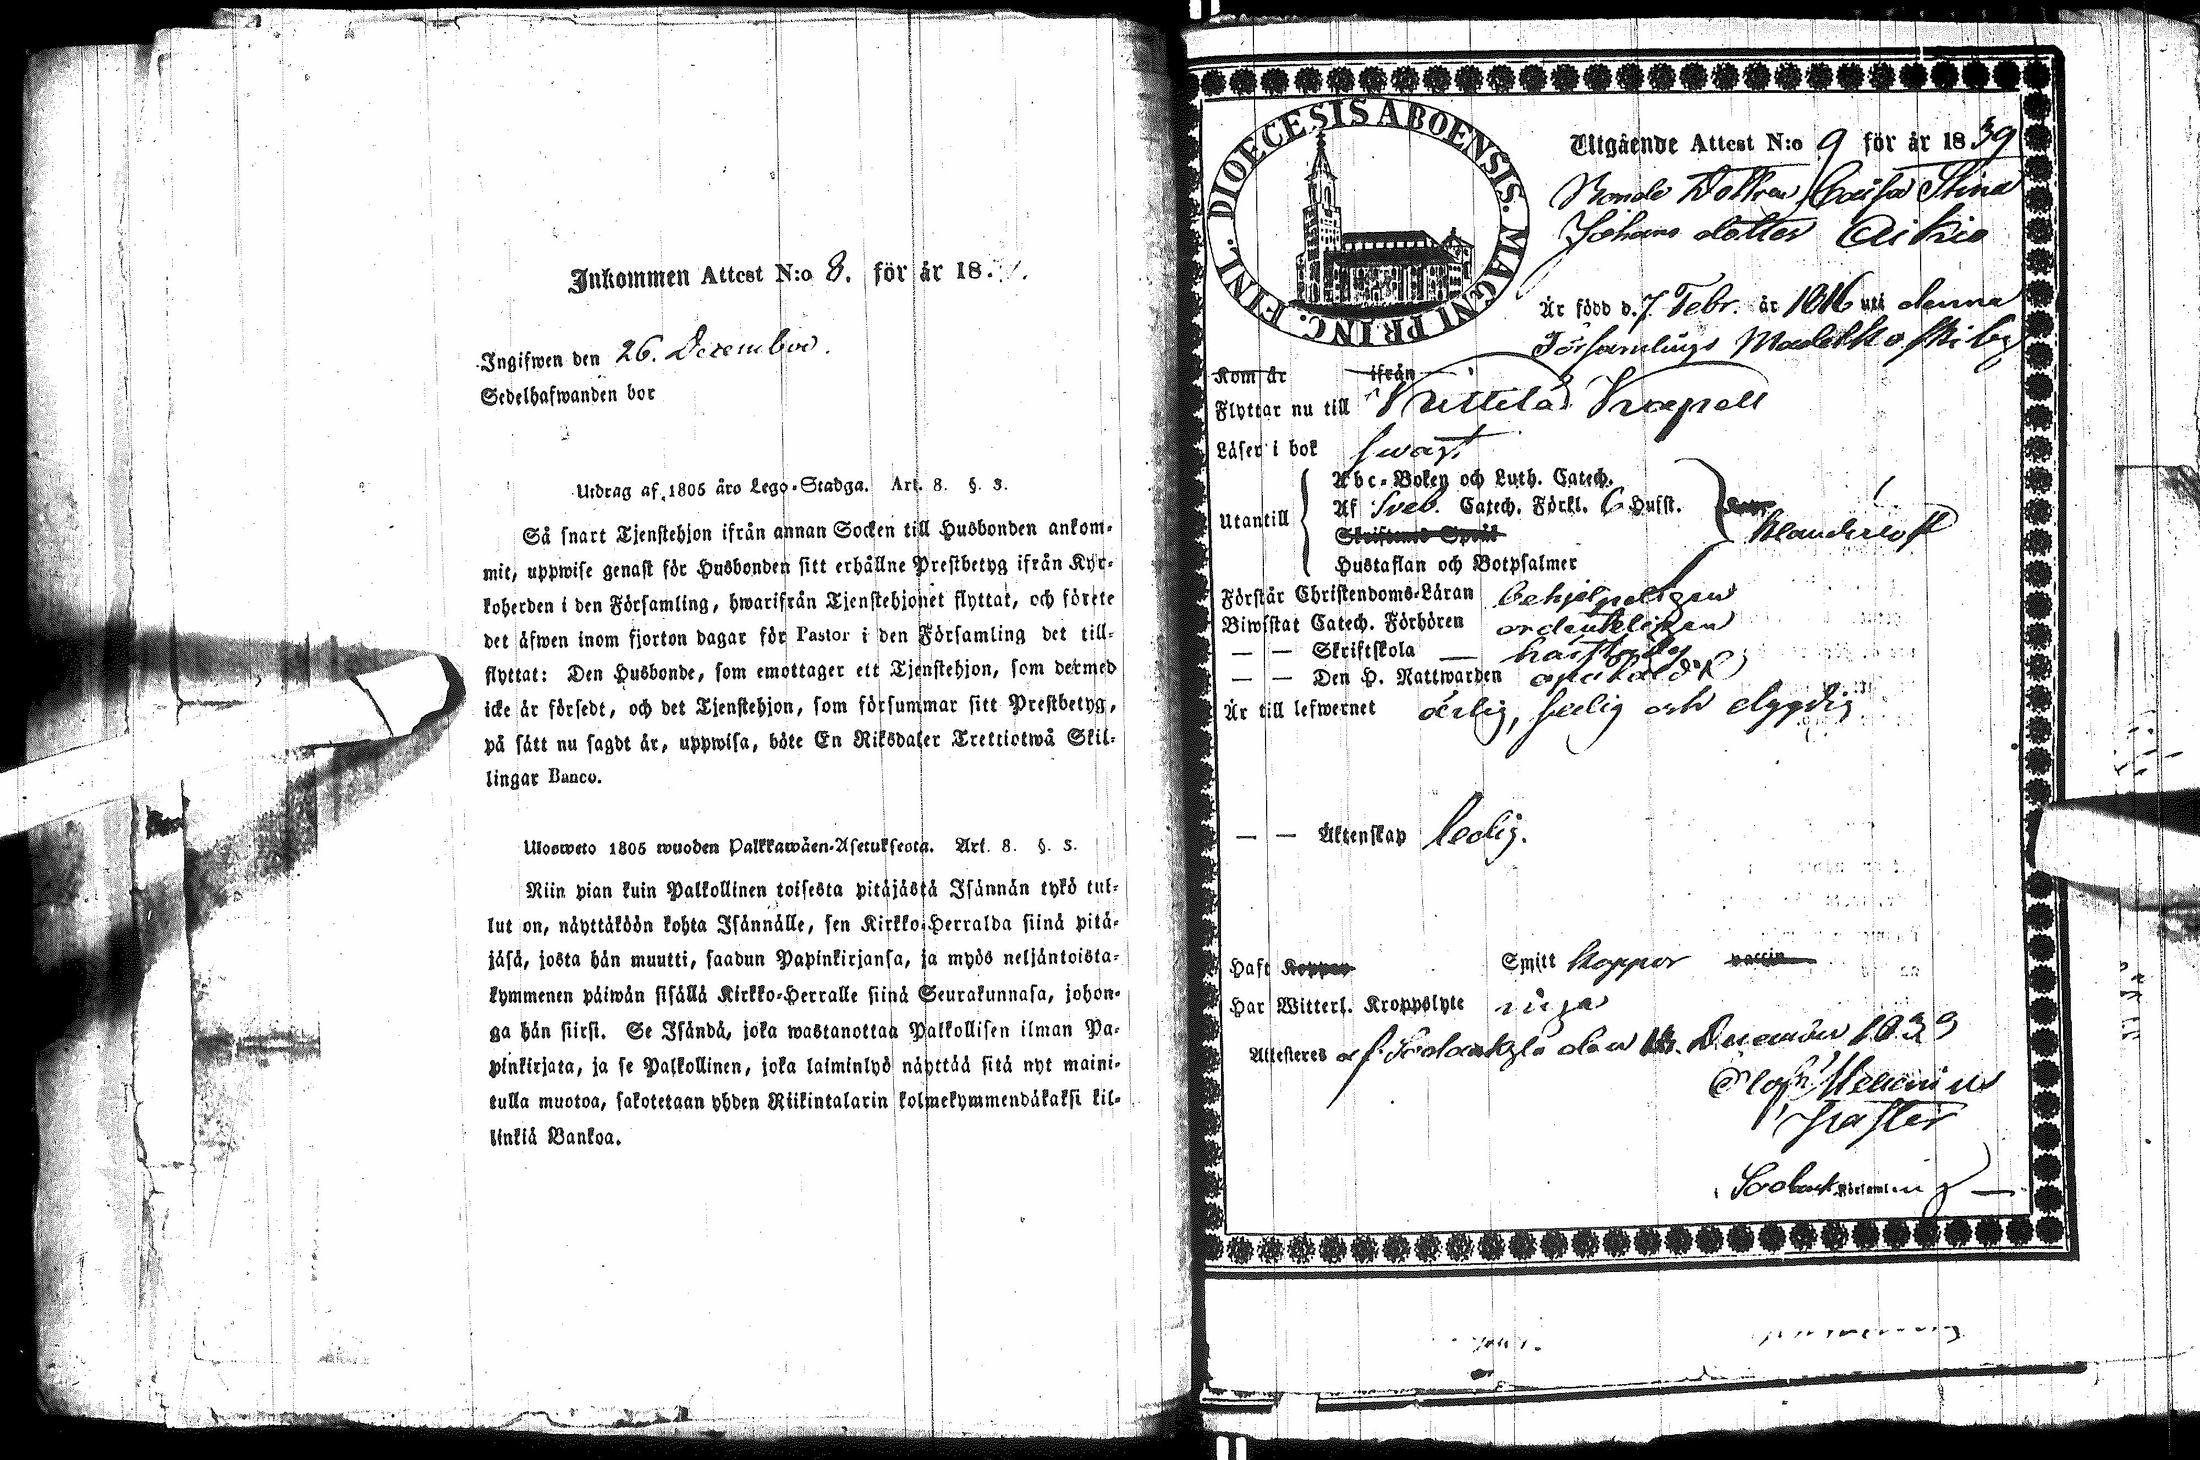 Inkommen Attest N:o 8. för år 18
Ingifwen den 26. December.
Sedelhafwanden bor
Utdrag af 1805 års Lego-Stadga. Art. 8. §. 3.
Så snart Tjenstehjon ifrån annan Socken till Husbonden ankom-
mit, uppwise genast för Husbonden sitt erhållne Prestbetyg ifrån Kyr-
koherden i den Församling, hwarifrån Tjenstehjonet flyttat, och förete
det äfwen inom fjorton dagar för Pastor i den Församling det till-
flyttat: Den Husbonde, som emottager ett Tjenstehjon, som dermed
icke är försedt, och det Tjenstehjon, som försummar sitt Prestbetyg,
på sätt nu sagdt är, uppwisa, böte En Riksdaler Trettiotwå Skil-
lingar Banco.
Ulosweto 1805 wuoden Palkkawäen-Asetuksesta. Art. 8. §. 3.
Niin pian kuin Palkollinen toisesta pitäjästä Isännän tykö tul-
lut on, näyttäköön kohta Isännälle, sen Kirkko-Herralda siinä pitä-
jäsä, josta hän muutti, saadun Papinkirjansa, ja myös neljäntoista-
kymmenen päiwän sisällä Kirkko-Herralle siinä Seurakunnasa, johon-
ga hän siirsi. Se Isändä, joka wastanottaa Palkollisen ilman Pa-
pinkirjata, ja se Palkollinen, joka laiminlyö näyttää sitä nyt maini-
tulla muotoa, sakotetaan yhden Riikintalarin kolmekymmendäkaksi kil-
linkiä Bankoa.
DIOECESIS ABOENSIS. MAGNI PRINC. FINL.
Utgående Attest N:o 9 för år 1839
Bonde Dottren Caisa Stina
Johans dotter Aikio
Är född d. 7 Febr. år 1816 uti denna
Församlings Madetkoski by
Kom år ifrån
Flyttar nu till Kittilä Kapell
Läser i bok swagt
Abc-Boken och Luth. Catech.
Utantill Af Sveb. Catech. Förkl. 6 Hufst.
Skriftenes Språk
Hustaflan och Botpsalmer
Förstår Christendoms-Läran behjelpeligen
Biwistat Catech. Förhören ordenteligen
— — Skriftskola —
— — Den H. Nattwarden
Är till lefwernet ärlig, sedig och dygdig
— — Äktenskap ledig.
Haft Koppor Smitt koppor vaccin
Har Witterl. Kroppslyte inga
Attesteres af Sodankylä den 18. December 1839
Pastor
Sodank. Församling